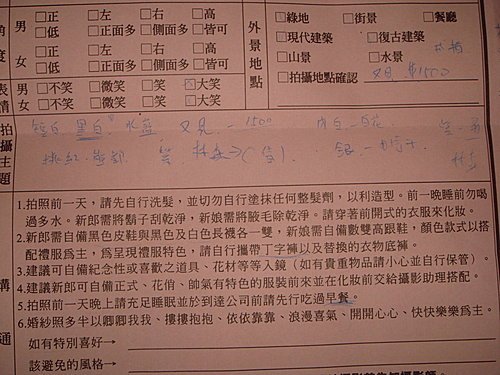 角度 男 □正 □左 □右 □高
□低 □正面多 □側面多 □皆可
女 □正 □左 □右 □高
□低 □正面多 □側面多 □皆可
表情 男 □不笑 □微笑 □笑 □大笑
女 □不笑 □微笑 □笑 □大笑
外景地點
□綠地 □街景 □餐廳
□現代建築 □復古建築
□山景 □水景
□拍攝地點確認
拍攝主題
黑白 水藍 1500
1.拍照前一天，請先自行洗髮，並切勿自行塗抹任何整髮劑，以利造型。前一晚睡前勿喝
過多水。新郎需將鬍子刮乾淨，新娘需將腋毛除乾淨。請穿著前開式的衣服來化妝。
2.新郎需自備黑色皮鞋與黑色及白色長襪各一雙，新娘需自備數雙高跟鞋，顏色款式以搭
配禮服爲主，爲呈現禮服特色，請自行攜帶丁字褲以及替換的衣物底褲。
3.建議可自備紀念性或喜歡之道具、花材等等入鏡（如有貴重物品請小心並自行保管）。
4.建議新郎可自備正式、花俏、帥氣有特色的服裝前來並在化妝前交給攝影助理搭配。
5.拍照前一天晚上請充足睡眠並於到達公司前請先行吃過早餐。
6.婚紗照多半以卿卿我我、摟摟抱抱、依依靠靠、浪漫喜氣、開開心心、快快樂樂爲主。
溝通
如有特別喜好→
該避免的風格→